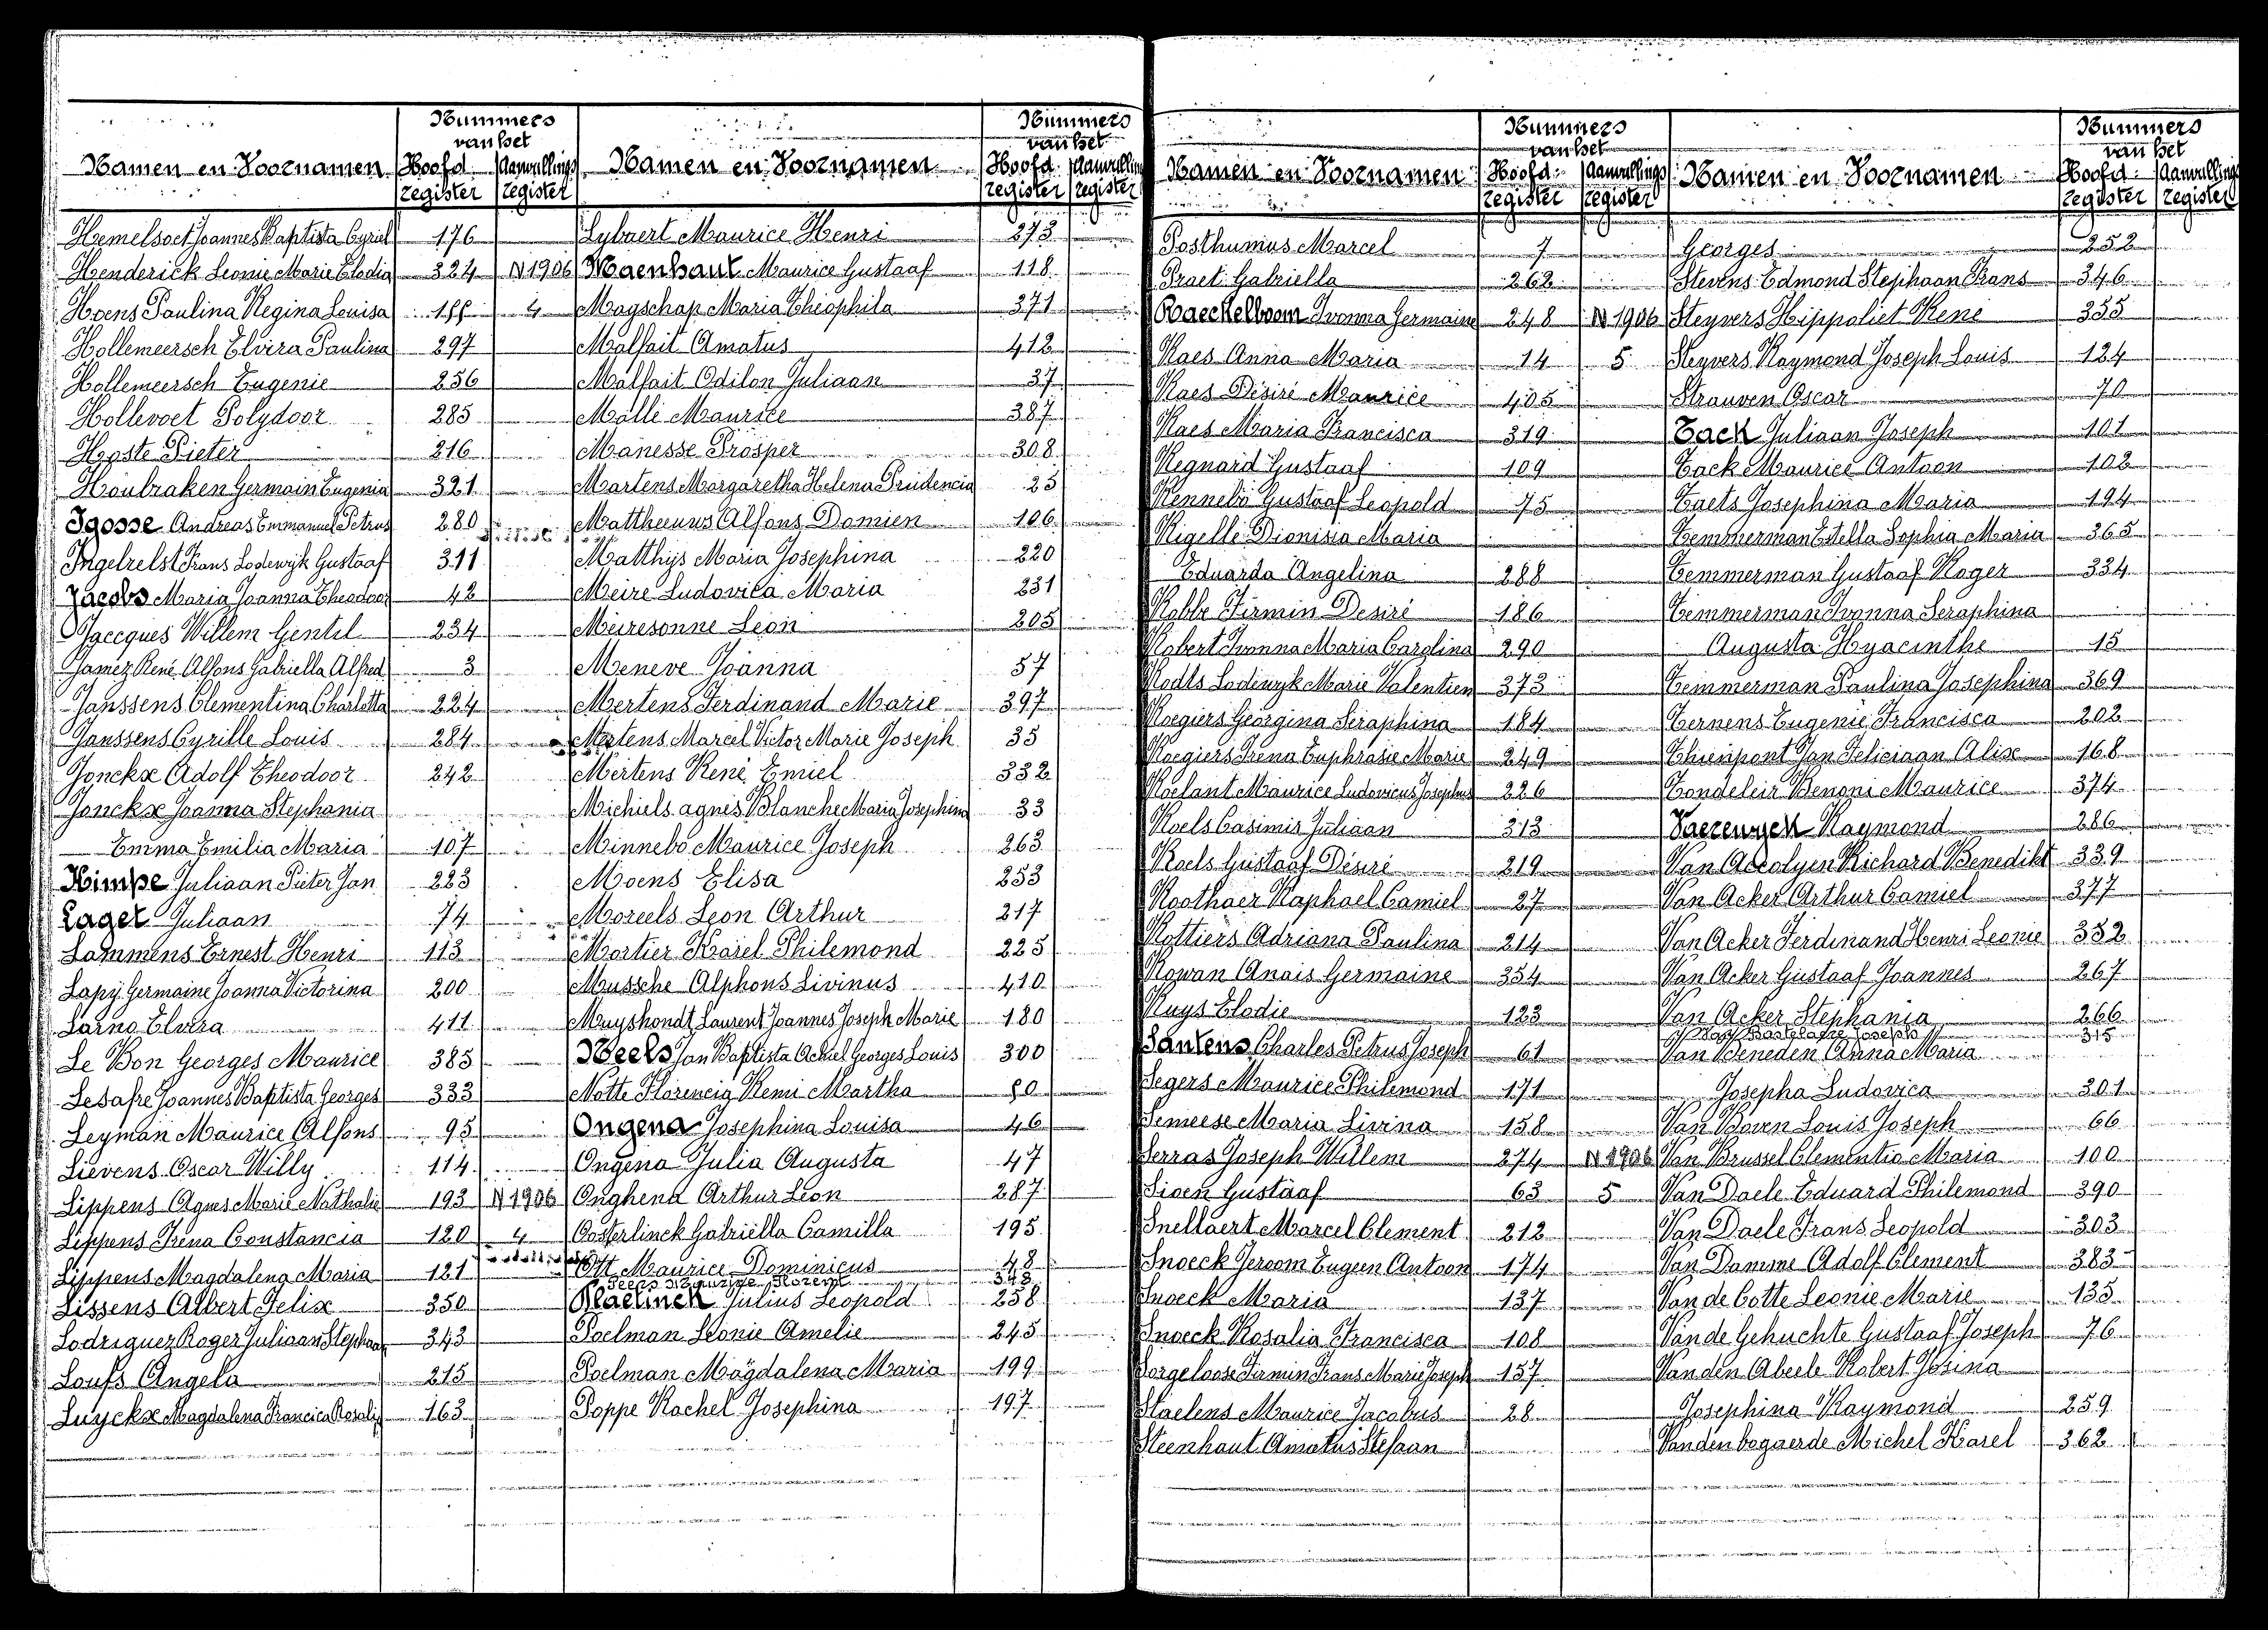 Nummers
van het
Namen en Voornamen Hoofd register Aanvullings register
Hemelsoet Joannes Baptista Cyriel 176
Henderick Leonie Marie Elodia 324 N 1906
Hoens Paulina Regina Louisa 4
Hollemeersch Elvira Paulina 297
Hollemeersch Eugenie 256
Hollevoet Polydoor 285
Hoste Pieter 216
Houbraken Germain Eugenia 321
Igosse Andreas Emmanuel Petrus 280
Ingelrelst Frans Lodewyk Gustaaf 311
Jacobs Maria Joanna Theodoor 42
Jaecques Willem Gentil 234
Jamez René Alfons Gabriella Alfred 3
Janssens Clementina Charlotta 224
Janssens Cyrille Louis 284
Jonckx Adolf Theodoor 242
Jonckx Joanna Stephania
Emma Emilia Maria 107
Kimpe Juliaan Pieter Jan 223
Lager Juliaan 74
Lammens Ernest Henri 113
Lapy Germaine Joanna Victorina 200
Larno Elvira 411
Le Bon Georges Maurice 385
Lesafre Joannes Baptista Georges 333
Leyman Maurice Alfons 95
Lievens Oscar Willy 114
Lippens Agnes Marie Nathalie 193 N 1906
Lippens Irena Constancia 120 4
Lippens Magdalena Maria 121
Lissens Albert Felix 350
Lodriguez Roger Juliaan Stephaan 343
Loufs Angela 215
Luyckx Magdalena Francica Rosalie 163
Nummers
van het
Namen en Voornamen Hoofd register Aanvulling register
Lybaert Maurice Henri 273
Maenhaut Maurice Gustaaf 118
Magschap Maria Théophila 371
Malfait Amatus 412
Malfait Odilon Juliaan 37
Malli Maurice 387
Manesse Prosper 308
Martens Margaretha Helena Prudencia 25
Mattheeuws Alfons Damien 106
Matthijs Maria Josephina 220
Meire Ludovica Maria 231
Meiresonne Leon 205
Meneve Joanna 57
Mertens Ferdinand Marie 397
Mertens Marcel Victor Marie Joseph 35
Mertens René Emiel 332
Michiels agnes Blanche Maria Josephina 33
Minnebo Maurice Joseph 263
Moens Elisa 253
Moreels Leon Arthur 217
Mortier Karel Philemond 225
Mussche Alphons Livinus 410
Muyshondt Laurent Joannes Joseph Marie 180
Neels Jan Baptista Achiel Georges Louis 300
Notte Florencia Remi Martha
Ongena Josephina Louisa 46
Ongena Julia Augusta 47
Onghena Arthur Leon 287
Oosterlinck Gabriella Camilla 195
Ott Maurice Dominicus 48
Peers Maurice Florent 348
Plaetinck Julius Leopold 258
Poelman Leonie Amelie 245
Poelman Magdalena Maria 199
Poppe Rachel Josephina 197
Nummers
van het
Namen en Voornamen Hoofd register Aanvullings register
Posthumus Marcel 7
Praet Gabriella 262
Raeckelboom Ivonna Germaine 248 N 1906
Raes Anna Maria 14 5
Raes Désiré Maurice 405
Raes Maria Francisca 319
Regnard Gustaaf 109
Rennebo Gustaaf Leopold 75
Rigelle Dionisia Maria
Eduarda Angelina 288
Robbe Firmin Desiré 186
Robert Ivonna Maria Carolina 290
Rodts Lodewyk Marie Valentien 373
Roegiers Georgina Seraphina 184
Roegiers Irena Euphrasie Marie 249
Roelant Maurice Ludovicus Josephus 226
Roels Casimir Juliaan 313
Roels Gustaaf Désiré 219
Roothaer Raphael Camiel 27
Rottiers Adriana Paulina 214
Rowan Anais Germaine 354
Ruys Elodie 123
Santens Charles Petrus Joseph 61
Segers Maurice Philemond 171
Semeese Maria Livina 158
Serras Joseph Willem 274 N 1906
Sioen Gustaaf 63 5
Snellaert Marcel Clement 212
Snoeck Jeroom Eugeen Antoon 174
Snoeck Maria 137
Snoeck Rosalia Francisca 108
Sorgeloose Firmin Frans Marie Joseph 157
Staelens Maurice Jacobus 28
Steenhaut Amatus Stefaan
Nummers
van het
Namen en Voornamen Hoofd register Aanvulling register
Georges 252
Stevens Edmond Stephaan Frans 346
Steyvers Hippoliet René 355
Steyvers Raymond Joseph Louis 124
Strauven Oscar 70
Tack Juliaan Joseph 101
Tack Maurice Antoon 102
Taets Josephina Maria 194
Temmerman Estella Sophia Maria 365
Temmerman Gustaaf Roger 334
Temmerman Ivonna Seraphina
Augusta Hyacinthe 15
Temmerman Paulina Josephina 369
Ternens Eugenie Francisca 202
Thienpont Jan Feliciaan Alix 168
Tondeleir Benoni Maurice 374
Vaerewyck Raymond 286
Van Accolyen Richard Benedikt 339
Van Acker Arthur Camiel 377
Van Acker Ferdinand Henri Leonie 352
Van Acker Gustaaf Joannes 267
Van Acker Stephania 266
315
Van Beneden Anna Maria
Josepha Ludovica 301
Van Boven Louis Joseph 66
Van Brussel Clementia Maria 100
Van Daele Eduard Philemond 390
Van Daele Frans Leopold 303
Van Damme Adolf Clement 383
Van de Cotte Leonie Marie 135
Van de Gehuchte Gustaaf Joseph 76
Vanden Abeele Robert Josina
Josephina Raymond 259
Vanden bogaerde Michel Karel 362